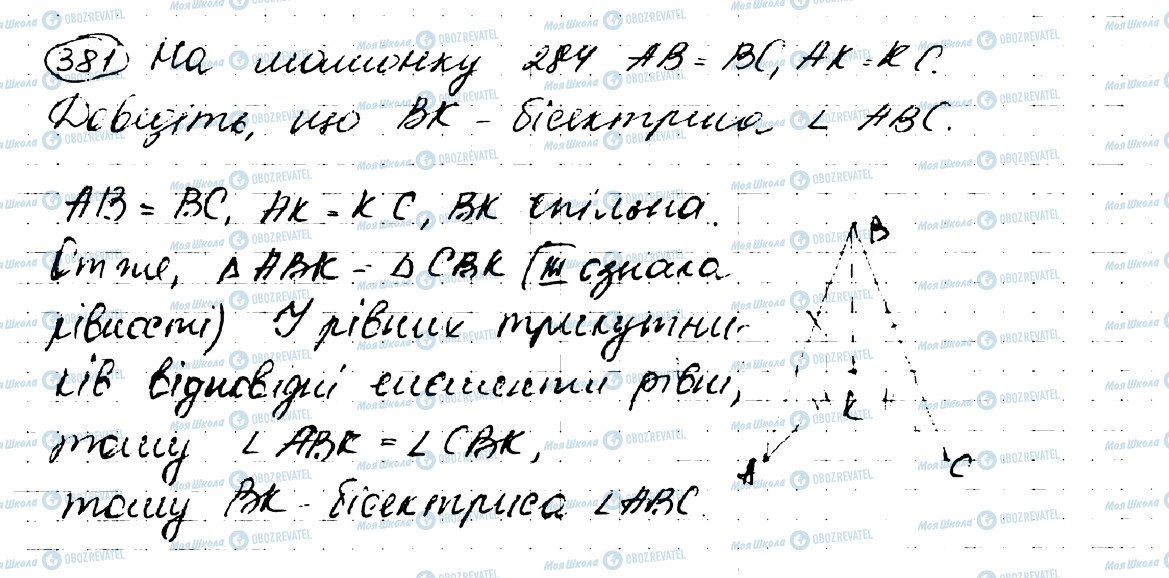 381 На малюнку 284 AB = BC, AK = KC.
Доведіть, що BK - бісектриса ∠ ABC.
AB = BC, AK = KC, BK спільна.
Отже, △ ABK = △ CBK (III ознака
рівності) У рівних трикутни-
ків відповідні елементи рівні,
тому ∠ ABK = ∠ CBK,
тому BK - бісектриса ∠ ABC.
B
K
A
C
Моя Школа OBOZREVATEL